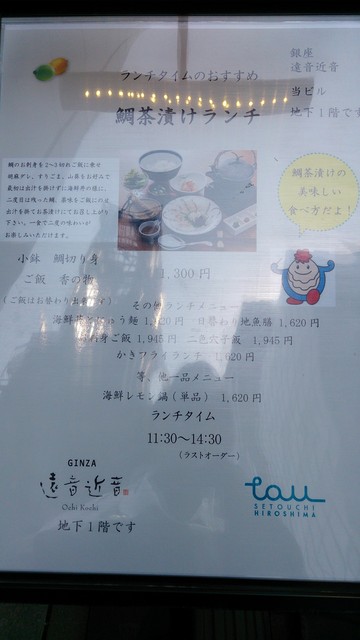 銀座
遠音近音
当ビル
地下1階です
ランチタイムのおすすめ
鯛茶漬けランチ
鯛のお刺身を2～3切れご飯に乗せ
胡麻ダレ、すりごま、山葵をお好みで
最初は出汁を掛けずに海鮮丼の様に、
二度目は残った鯛、薬味をご飯にのせ
出汁を掛てお茶漬けにてお召し上がり
下さい。一食で二度の味わいが
お楽しみいただけます。
鯛茶漬けの
美味しい
食べ方だよ!
小鉢 鯛切り身
ご飯 香の物
1,300円
(ご飯はお替わり出来ます)
その他ランチメニュー
1,620円 日替わり地魚膳 1,620円
お刺身ご飯 1,945円 二色穴子飯 1,945円
かきフライランチ 1,620円
等、他一品メニュー
海鮮レモン鍋(単品) 1,620円
ランチタイム
11:30～14:30
(ラストオーダー)
GINZA
遠音近音
Ochi Kochi
地下1階です
tau
SETOUCHI
HIROSHIMA